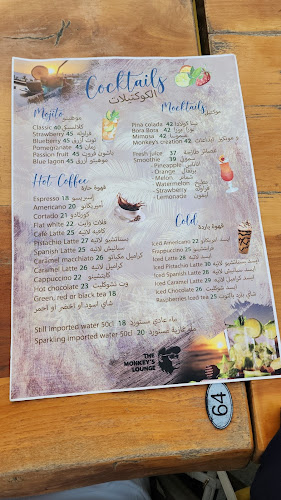 Cocktails
الكوكتيلات
Mojito موهيتو
Classic 40 كلاسيكي
Strawberry 45 فراولة
Blueberry 45 توت أزرق
Pomegranate 45 رمان
Passion fruit 45 باشون فروت
Blue lagon 45 موهيتو أزرق
Mocktails موكتيل
Pina colada 42 بينا كولادا
Bora Bora 42 بورا بورا
Mimosa 42 ميموسا
Monkey's creation 42
Fresh juice 37 عصائر طازجة
Smoothie 39 سموذي
- Pineapple أناناس
- Orange برتقال
- Melon شمام
- Watermelon بطيخ
- Strawberry فراولة
- Lemonade ليمون
Hot Coffee قهوة حارة
Espresso 18 إسبريسو
Americano 20 أمريكانو
Cortado 21 كورتادو
Flat white 22 فلات وايت
Café Latte 23 كافيه لاتيه
Pistachio Latte 27 بستاشيو لاتيه
Spanish Latte 25 سبانش لاتيه
Caramel macchiato 26 كراميل مكياتو
Caramel Latte 26 كراميل لاتيه
Cappuccino 22 كابتشينو
Hot chocolate 23 هوت شوكليت
Green, red or black tea 18
شاي أسود أو أخضر أو أحمر
Cold قهوة باردة
Iced Americano 22 آيسد أمريكانو
Frappuccino 25 فرابتشينو
Iced Latte 28 آيسد لاتيه
Iced Pistachio Latte 30
Iced Spanish Latte 28
Iced Caramel Latte 29
Iced Chocolate 26
Raspberries Iced tea 25
Still imported water 50cl 18 ماء عادي مستورد
Sparkling imported water 50cl 20 ماء غازية مستورد
THE
MONKEY'S
LOUNGE
64